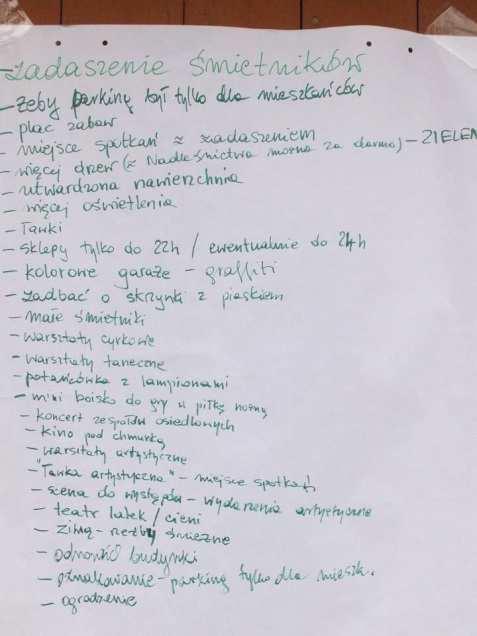 - zadaszenie śmietników
- żeby parking był tylko dla mieszkańców
- plac zabaw
- miejsce spotkań z zadaszeniem
- więcej drzew (z Nadleśnictwa można za darmo) - ZIELEŃ
- utwardzona nawierzchnia
- więcej oświetlenia
- ławki
- sklepy tylko do 22h / ewentualnie do 24h
- kolorowe garaże - graffiti
- zadbać o skrzynki z piaskiem
- małe śmietniki
- warsztaty cyrkowe
- warsztaty taneczne
- potańcówka z lampionami
- mini boisko do gry w piłkę nożną
- koncert zespołów osiedlowych
- kino pod chmurką
- warsztaty artystyczne
- "Ławka artystyczna" - miejsce spotkań
- scena do występów - wydarzenia artystyczne
- teatr lalek / cieni
- zimą - rzeźby śnieżne
- odnowić budynki
- oznakowanie - parking tylko dla mieszk.
- ogrodzenie